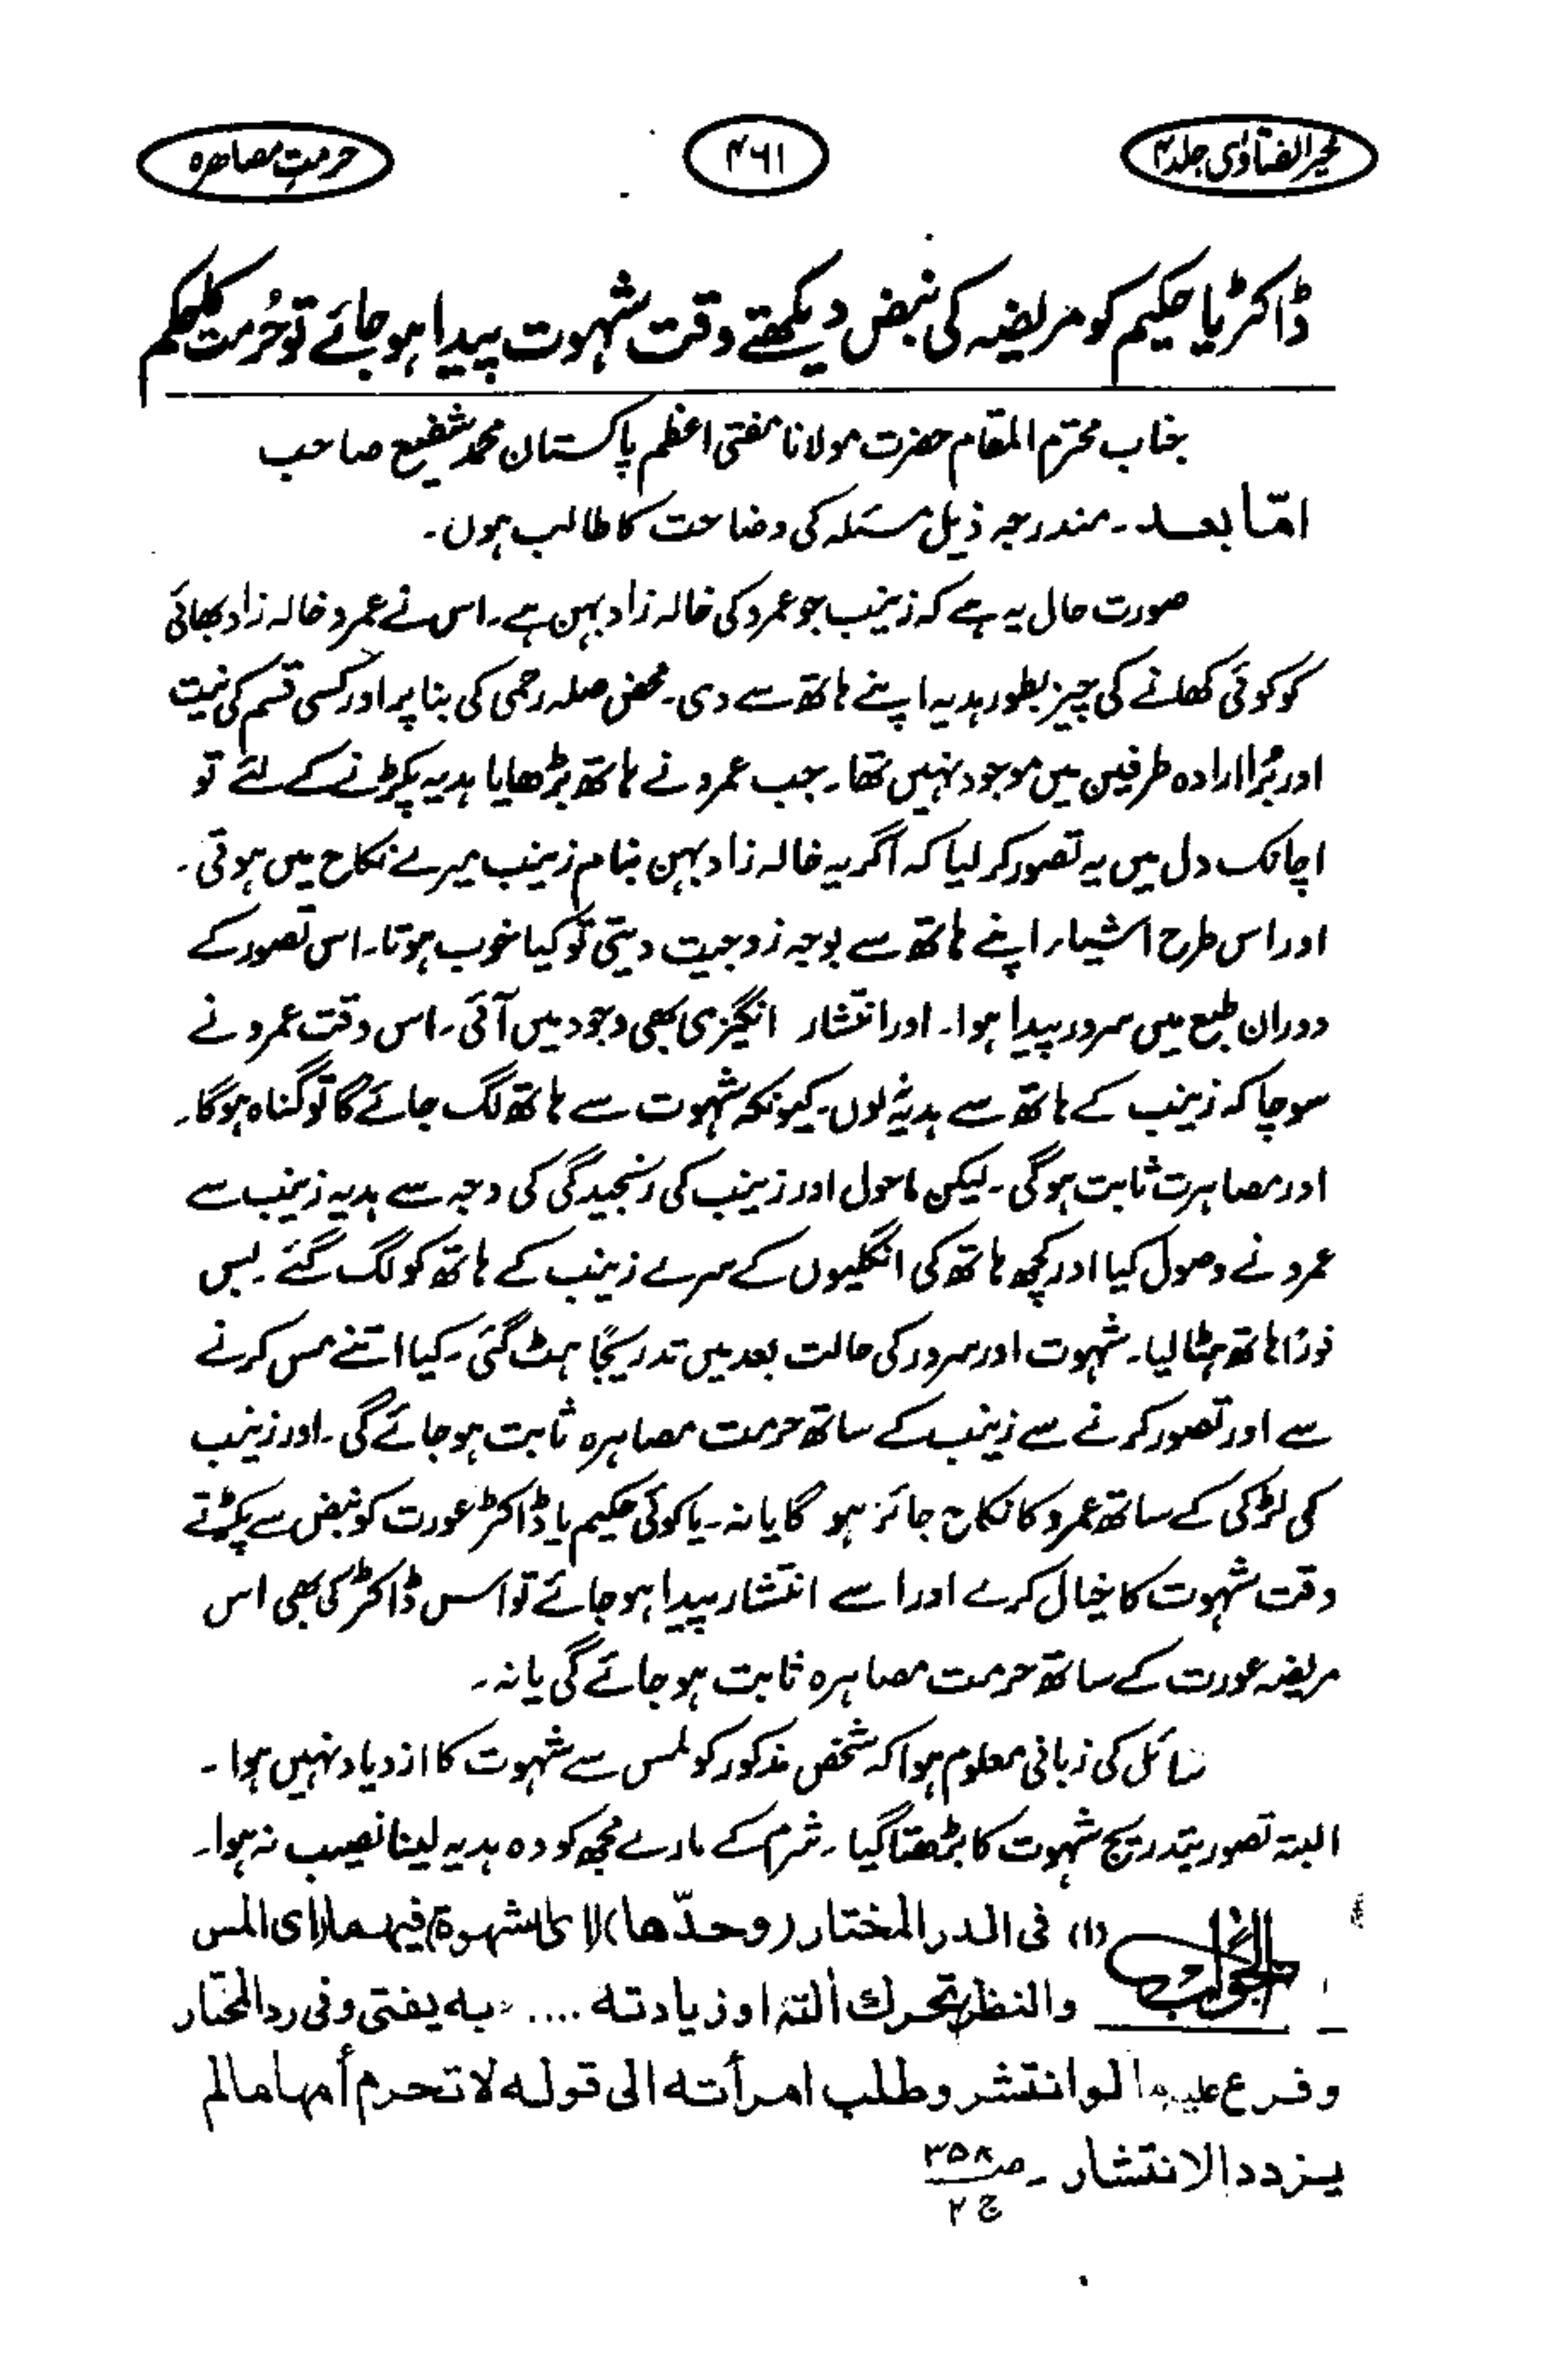 خیر الفتاوٰی جلد ۴
۴۶۱
حرمتِ مصاہرہ
ڈاکٹر یا حکیم کو مریضہ کی نبض دیکھتے وقت شہوت پیدا ہو جائے تو حُرمت کا حکم
جناب محترم المقام حضرت مولانا مفتی اعظم پاکستان محمد شفیع صاحب
امّا بعد ۔ مندرجہ ذیل مسئلہ کی وضاحت کا طالب ہوں ۔
صورت حال یہ ہے کہ زینب جو عمرو کی خالہ زاد بہن ہے ۔ اس نے عمرو خالہ زاد بھائی
کو کوئی کھانے کی چیز بطور ہدیہ اپنے ہاتھ سے دی ۔ محض صلہ رحمی کی بنا پر اور کسی قسم کی نیت
اور بُرا ارادہ طرفین میں موجود نہیں تھا ۔ جب عمرو نے ہاتھ بڑھایا ہدیہ پکڑنے کے لئے تو
اچانک دل میں یہ تصور کر لیا کہ اگر یہ خالہ زاد بہن بنام زینب میرے نکاح میں ہوتی ۔
اور اس طرح اشیاء اپنے ہاتھ سے بوجہ زوجیت دیتی تو کیا خوب ہوتا ۔ اس تصور کے
دوران طبع میں سرور پیدا ہوا ۔ اور انتشار انگیزی بھی وجود میں آئی ۔ اس وقت عمرو نے
سوچا کہ زینب کے ہاتھ سے ہدیہ نہ لوں ۔ کیونکہ شہوت سے ہاتھ لگ جائے گا تو گناہ ہوگا ۔
اور مصاہرت ثابت ہوگی ۔ لیکن ماحول اور زینب کی رنجیدگی کی وجہ سے ہدیہ زینب سے
عمرو نے وصول کیا اور کچھ ہاتھ کی انگلیوں کے سرے زینب کے ہاتھ کو لگ گئے ۔ بس
فورًا ہاتھ ہٹا لیا ۔ شہوت اور سرور کی حالت بعد میں تدریجًا ہٹ گئی ۔ کیا اتنے مس کرنے
سے اور تصور کرنے سے زینب کے ساتھ حرمت مصاہرہ ثابت ہو جائے گی ۔ اور زینب
کی لڑکی کے ساتھ عمرو کا نکاح جائز ہو گا یا نہ ۔ یا کوئی حکیم یا ڈاکٹر عورت کو نبض سے پکڑتے
وقت شہوت کا خیال کرے اور اسے انتشار پیدا ہو جائے تو اسس ڈاکٹر کی بھی اس
مریضہ عورت کے ساتھ حرمت مصاہرہ ثابت ہو جائے گی یا نہ ۔
سائل کی زبانی معلوم ہوا کہ شخص مذکور کو لمس سے شہوت کا ازدیاد نہیں ہوا ۔
البتہ تصور بتدریج شہوت کا بڑھتا گیا ۔ شرم کے مارے مجھ کو وہ ہدیہ لینا نصیب نہ ہوا ۔
الجواب (۱) فی الدر المختار (وحدّها) ای الشهوة (فیهما) ای المس
والنظر (تحرك ألته او زیادته .... به یفتی وفی رد المختار
وفرع علیه ما لو انتشر وطلب امرأته الی قوله لا تحرم أمها ما لم
یزدد الانتشار ۔ صـ ۳۵۸
ج ۲